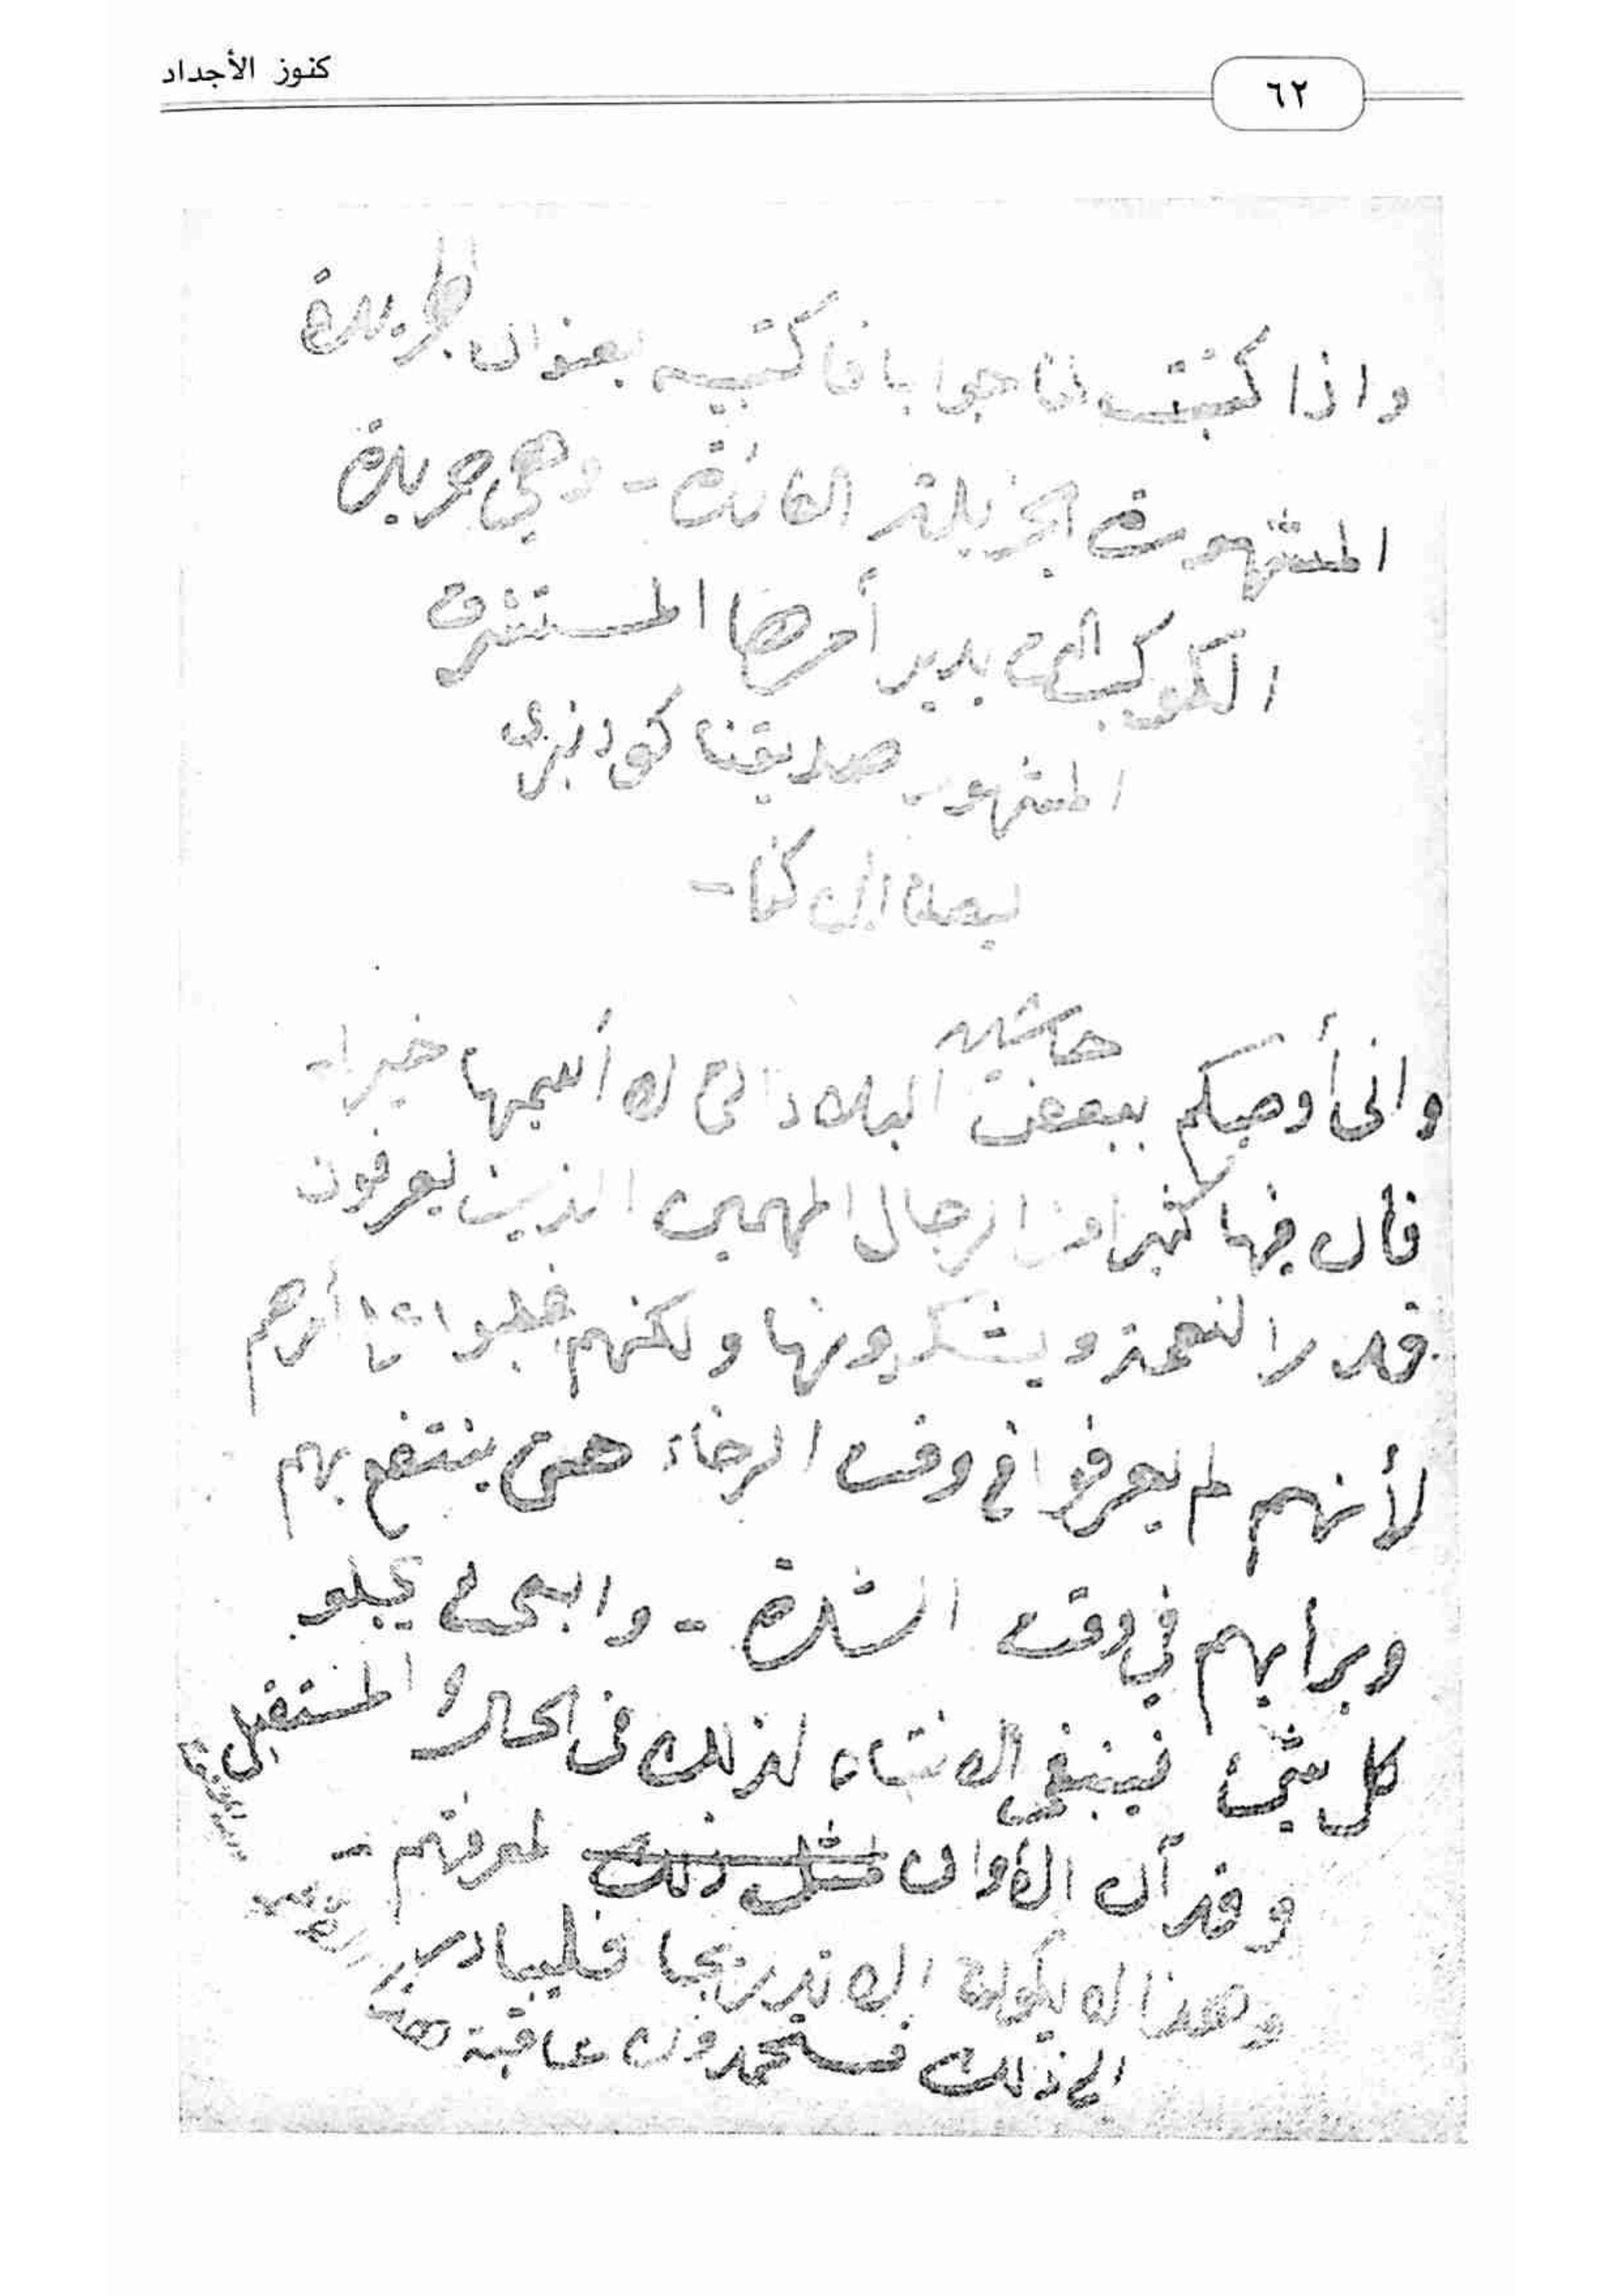 كنوز الأجداد
٦٢
واذا كتبت لنا جوابا فاكتبه بعنوان الجريدة
المشهورة الجزيلة الفائدة - وهي جريدة
الكوكب التي يدير أمرها المستشرق
المشهور صديقنا
ليصلنا إلى هنا -
حاشية
واني أوصيكم ببعض البلاد التي لا أسميها خيرا -
فان فيها كثيرا من الرجال المهمين الذين يعرفون
قدر النعمة ويشكرونها ولكنهم
لأنهم لم يعرفوا في وقت الرخاء حتى ينتفع بهم
وبرأيهم في وقت الشدة - والبحث يجلو
كل شيء فينبغي الانتباه لذلك في الحال والمستقبل
وقد آن الأوان لمثل ذلك لمعرفتهم -
وهذا لا يكون إلا تدريجا فليبادر
إلى ذلك فستحمدون عاقبة هذا